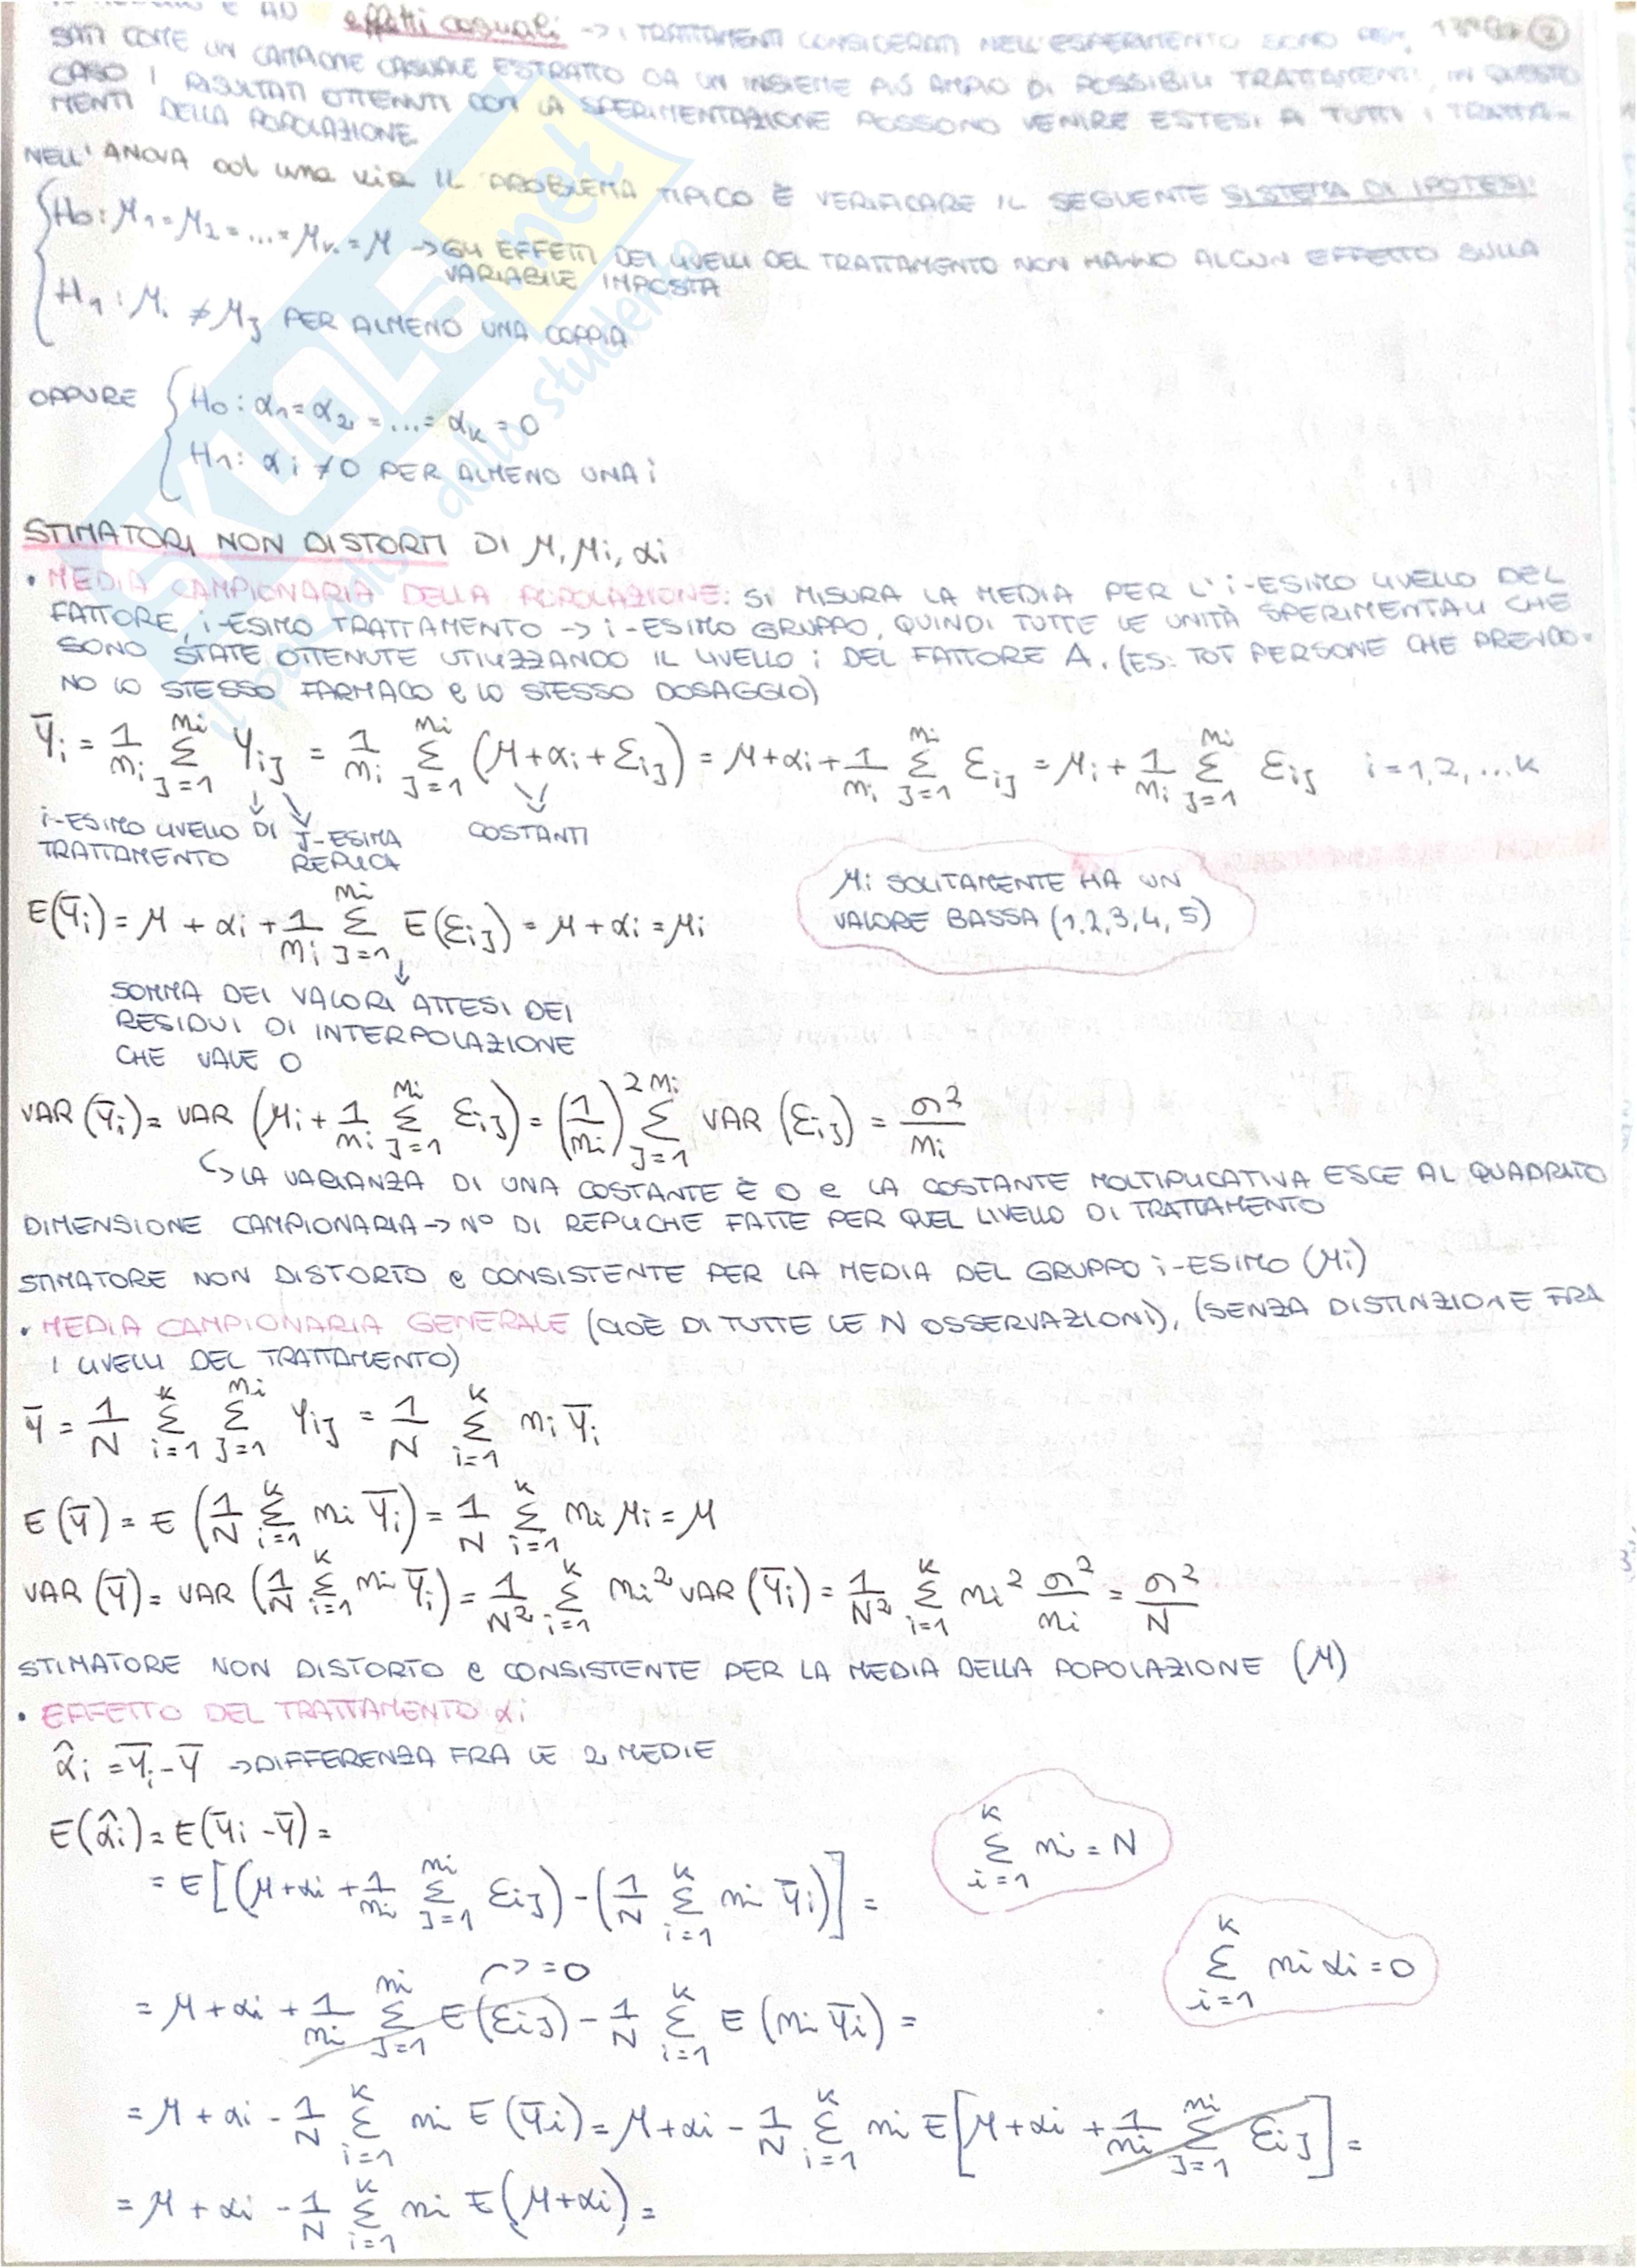 E AD effetti casuali -> I TRATTAMENTI CONSIDERATI NELL'ESPERIMENTO SONO PEN
SATI COME UN CAMPIONE CASUALE ESTRATTO DA UN INSIEME PIÙ AMPIO DI POSSIBILI TRATTAMENTI, IN QUESTO
CASO I RISULTATI OTTENUTI CON LA SPERIMENTAZIONE POSSONO VENIRE ESTESI A TUTTI I TRATTA-
MENTI DELLA POPOLAZIONE.
NELL'ANOVA ad una via IL PROBLEMA TIPICO È VERIFICARE IL SEGUENTE SISTEMA DI IPOTESI:
H0: μ1 = μ2 = ... = μk = μ -> GLI EFFETTI DEI LIVELLI DEL TRATTAMENTO NON HANNO ALCUN EFFETTO SULLA
VARIABILE IMPOSTA
H1: μi ≠ μJ PER ALMENO UNA COPPIA
OPPURE { H0: α1 = α2 = ... = αk = 0
H1: αi ≠ 0 PER ALMENO UNA i
STIMATORI NON DISTORTI DI μ, μi, αi
• MEDIA CAMPIONARIA DELLA POPOLAZIONE: SI MISURA LA MEDIA PER L'i-ESIMO LIVELLO DEL
FATTORE, i-ESIMO TRATTAMENTO -> i-ESIMO GRUPPO, QUINDI TUTTE LE UNITÀ SPERIMENTALI CHE
SONO STATE OTTENUTE UTILIZZANDO IL LIVELLO i DEL FATTORE A. (ES: TOT PERSONE CHE PRENDO-
NO LO STESSO FARMACO e LO STESSO DOSAGGIO)
Ȳi = 1/ni Σ(J=1→ni) YiJ = 1/ni Σ(J=1→ni) (μ + αi + εiJ) = μ + αi + 1/ni Σ(J=1→ni) εiJ = μi + 1/ni Σ(J=1→ni) εiJ i = 1,2,...k
i-ESIMO LIVELLO DI J-ESIMA COSTANTI
TRATTAMENTO REPLICA
E(Ȳi) = μ + αi + 1/ni Σ(J=1→ni) E(εiJ) = μ + αi = μi
μi SOLITAMENTE HA UN
VALORE BASSA (1,2,3,4,5)
SOMMA DEI VALORI ATTESI DEI
RESIDUI DI INTERPOLAZIONE
CHE VALE 0
VAR(Ȳi) = VAR(μi + 1/ni Σ(J=1→ni) εiJ) = (1/ni)² Σ(J=1→ni) VAR(εiJ) = σ²/ni
↳ LA VARIANZA DI UNA COSTANTE È 0 e LA COSTANTE MOLTIPLICATIVA ESCE AL QUADRATO
DIMENSIONE CAMPIONARIA -> N° DI REPLICHE FATTE PER QUEL LIVELLO DI TRATTAMENTO
STIMATORE NON DISTORTO e CONSISTENTE PER LA MEDIA DEL GRUPPO i-ESIMO (μi)
• MEDIA CAMPIONARIA GENERALE (CIOÈ DI TUTTE LE N OSSERVAZIONI), (SENZA DISTINZIONE FRA
I LIVELLI DEL TRATTAMENTO)
Ȳ = 1/N Σ(i=1→k) Σ(J=1→ni) YiJ = 1/N Σ(i=1→k) ni Ȳi
E(Ȳ) = E(1/N Σ(i=1→k) ni Ȳi) = 1/N Σ(i=1→k) ni μi = μ
VAR(Ȳ) = VAR(1/N Σ(i=1→k) ni Ȳi) = 1/N² Σ(i=1→k) ni² VAR(Ȳi) = 1/N² Σ(i=1→k) ni² σ²/ni = σ²/N
STIMATORE NON DISTORTO e CONSISTENTE PER LA MEDIA DELLA POPOLAZIONE (μ)
• EFFETTO DEL TRATTAMENTO αi
α̂i = Ȳi - Ȳ -> DIFFERENZA FRA LE 2 MEDIE
E(α̂i) = E(Ȳi - Ȳ) =
Σ(i=1→k) ni = N
= E[(μ + αi + 1/ni Σ(J=1→ni) εiJ) - (1/N Σ(i=1→k) ni Ȳi)] =
Σ(i=1→k) ni αi = 0
-> = 0
= μ + αi + 1/ni Σ(J=1→ni) E(εiJ) - 1/N Σ(i=1→k) E(ni Ȳi) =
= μ + αi - 1/N Σ(i=1→k) ni E(Ȳi) = μ + αi - 1/N Σ(i=1→k) ni E[μ + αi + 1/ni Σ(J=1→ni) εiJ] =
= μ + αi - 1/N Σ(i=1→k) ni E(μ + αi) =
SKUOLA.net
il paradiso dello studente